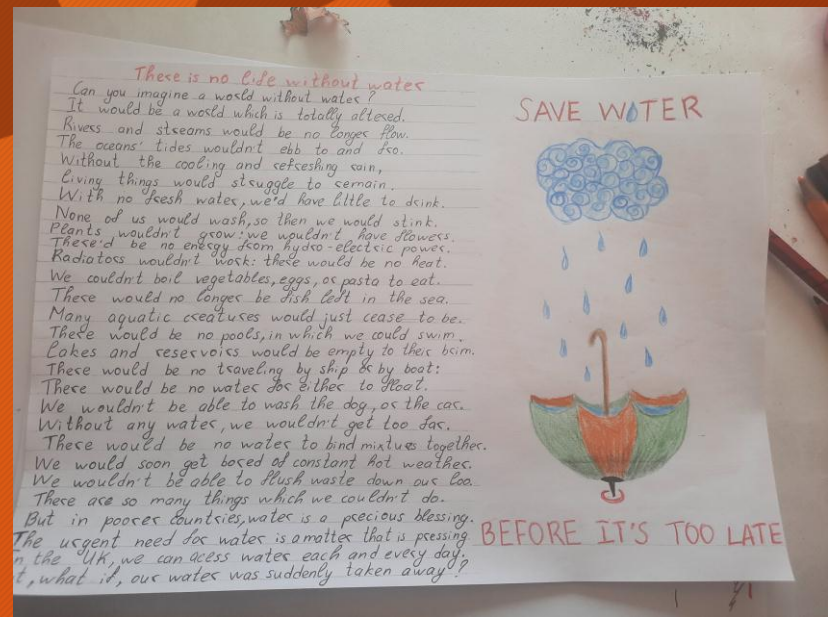 There is no life without water
Can you imagine a world without water?
It would be a world which is totally altered.
Rivers and streams would be no longer flow.
The oceans' tides wouldn't ebb to and fro.
Without the cooling and refreshing rain,
living things would struggle to remain.
With no fresh water, we'd have little to drink.
None of us would wash, so then we would stink.
Plants wouldn't grow: we wouldn't have flowers.
There'd be no energy from hydro-electric power.
Radiators wouldn't work: there would be no heat.
We couldn't boil vegetables, eggs, or pasta to eat.
There would no longer be fish left in the sea.
Many aquatic creatures would just cease to be.
There would be no pools, in which we could swim.
Lakes and reservoirs would be empty to their brim.
There would be no traveling by ship or by boat:
There would be no water for either to float.
We wouldn't be able to wash the dog, or the car.
Without any water, we wouldn't get too far.
There would be no water to bind mixtures together.
We would soon get bored of constant hot weather.
We wouldn't be able to flush waste down our loo.
There are so many things which we couldn't do.
But in poorer countries, water is a precious blessing.
The urgent need for water is a matter that is pressing
n the UK, we can acess water each and every day.
t, what if, our water was suddenly taken away?
SAVE WATER
BEFORE IT'S TOO LATE